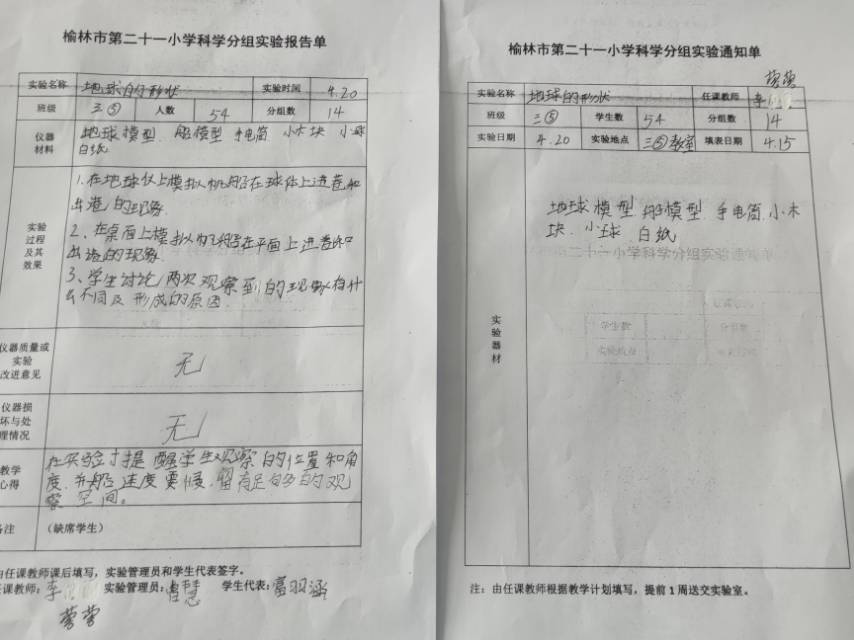 榆林市第二十一小学科学分组实验报告单
实验名称 地球的形状 实验时间 4.20
班级 三⑤ 人数 54 分组数 14
仪器材料 地球模型 船模型 手电筒 小木块 小球
白纸
实验过程及其效果
1、在地球仪上模拟帆船在球体上进港和
出港的现象
2、在桌面上模拟帆船在平面上进港和
出港的现象
3、学生讨论两次观察到的现象有什
么不同及形成的原因
仪器质量或实验改进意见 无
仪器损坏与处理情况 无
教学心得
在实验时提醒学生观察的位置和角
度,并船速度要慢,留有足够的观
察空间。
备注 (缺席学生)
由任课教师课后填写,实验管理员和学生代表签字。
任课教师: 李 实验管理员: 学生代表: 富羽涵
榆林市第二十一小学科学分组实验通知单
实验名称 地球的形状 任课教师 李
班级 三⑤ 学生数 54 分组数 14
实验日期 4.20 实验地点 三⑤教室 填表日期 4.15
实验器材
地球模型 船模型 手电筒 小木
块 小球 白纸
注:由任课教师根据教学计划填写,提前1周送交实验室。